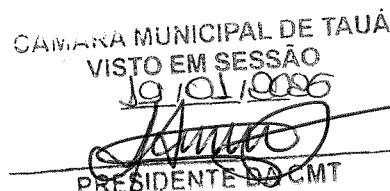 CÂMARA MUNICIPAL DE TAUÁ
VISTO EM SESSÃO
PRESIDENTE DA CMT